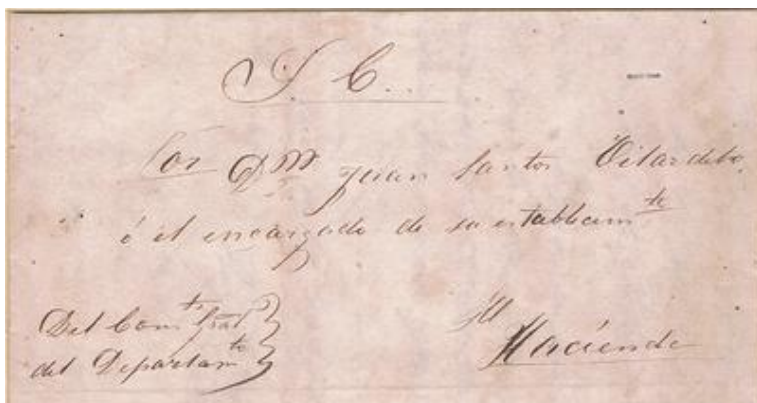 S. C.
Por Dⁿ Juan Santos Vilardebo
ó el encargado de su establecimᵗᵒ
Del Comᵗᵉ Gral
del Departamᵗᵒ
Su
Hacienda